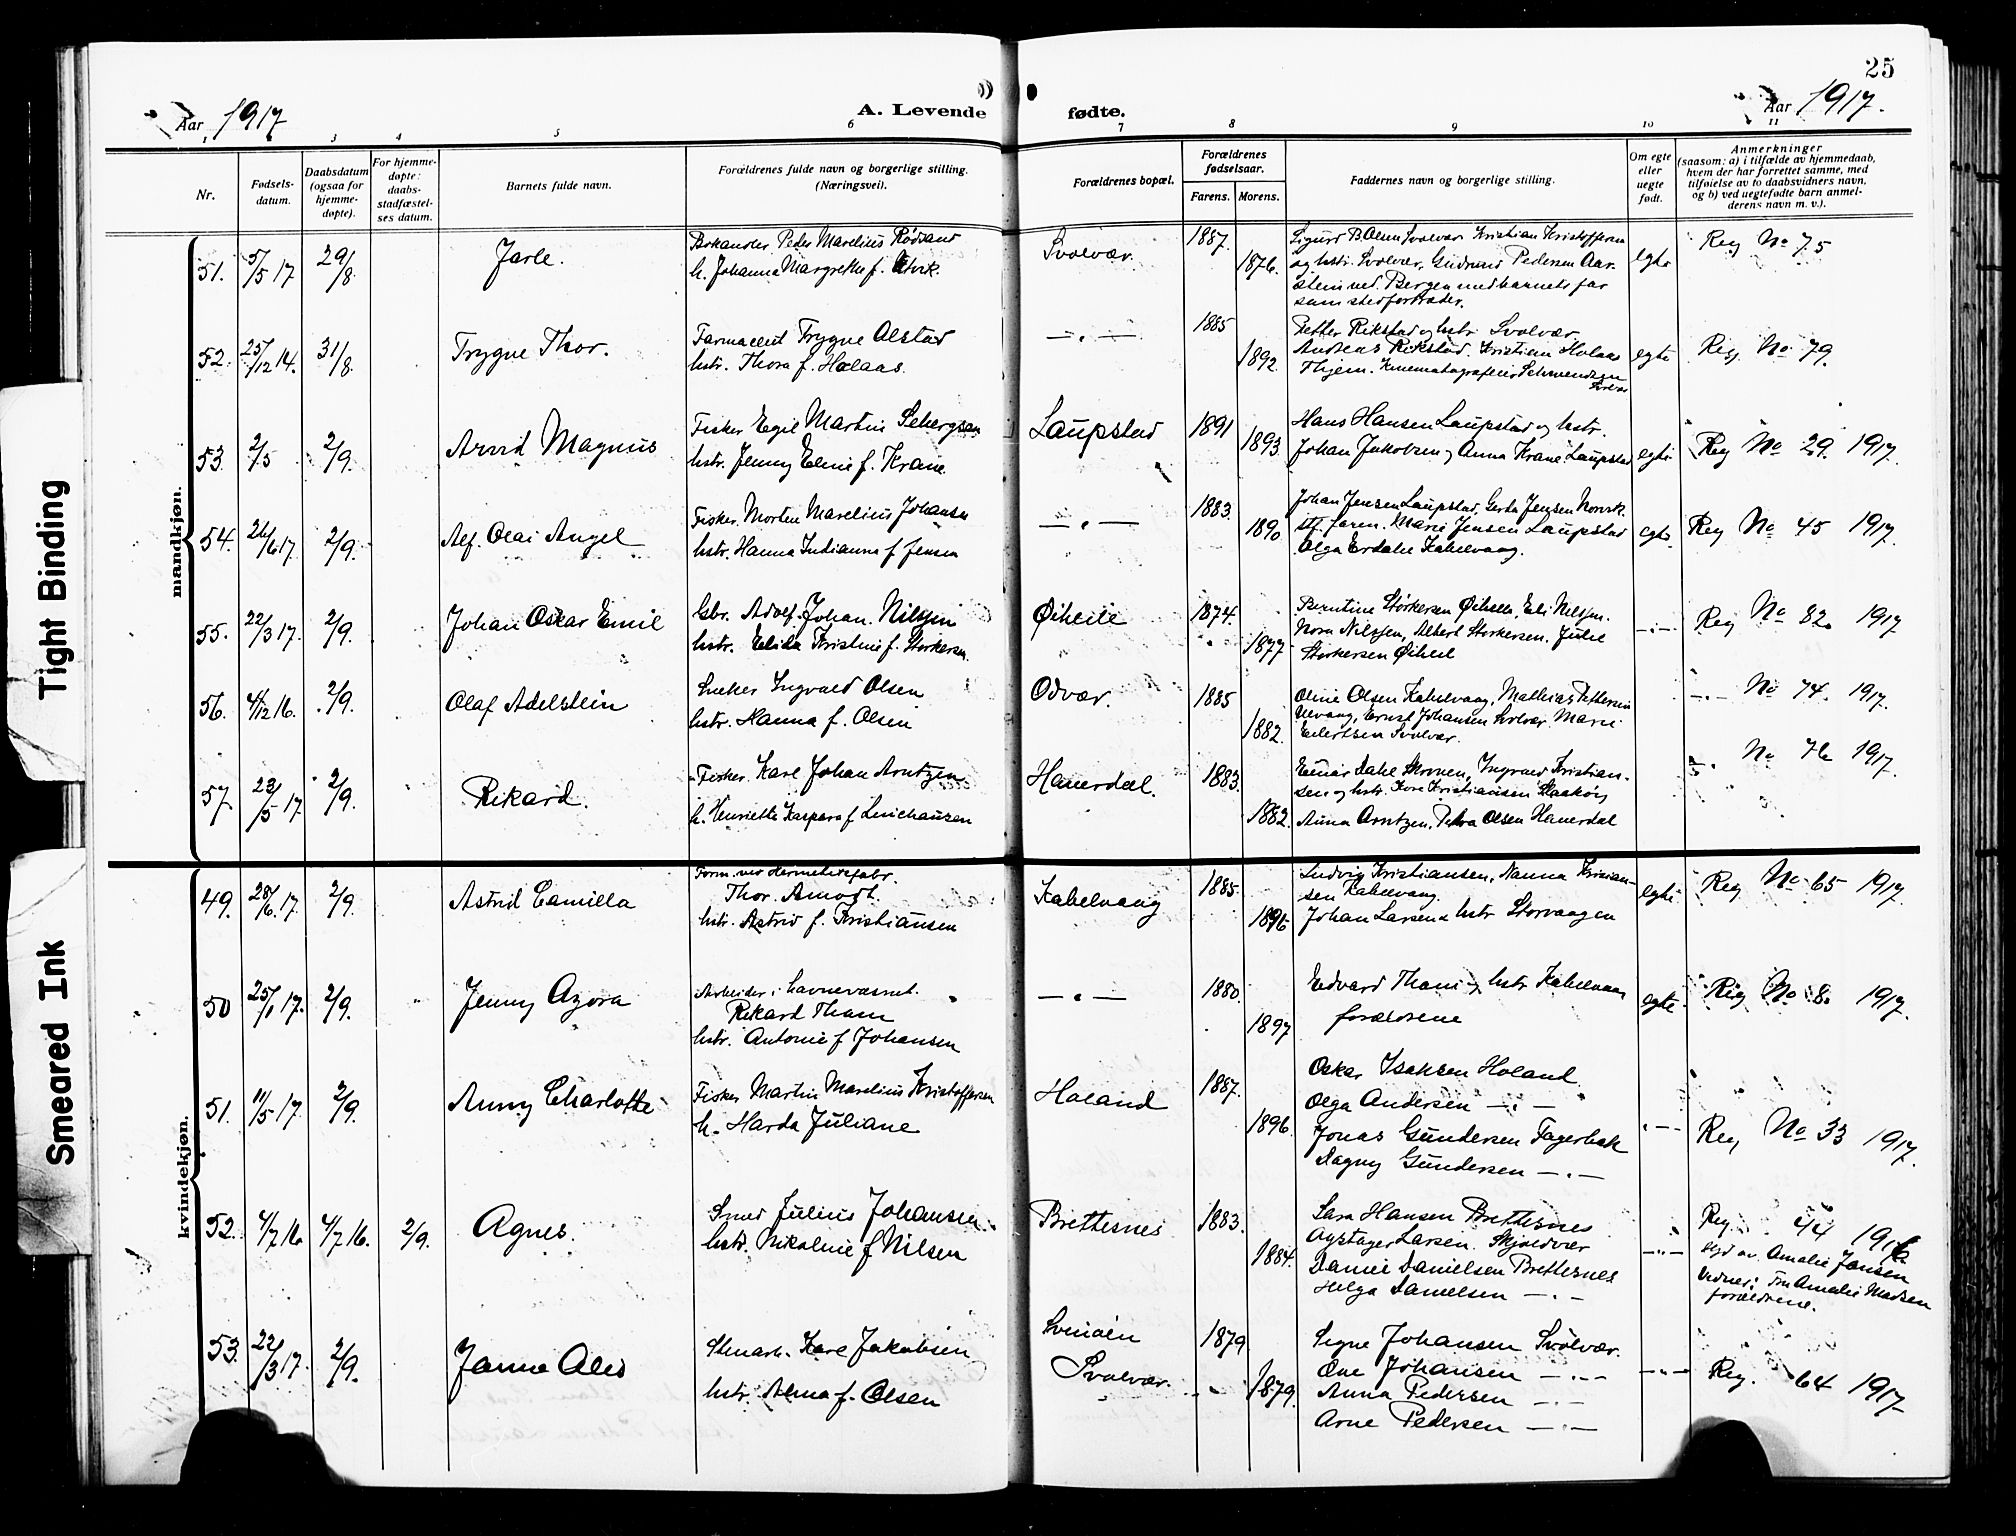 25
Aar 1917
A. Levende
fødte.
Aar 1917.
1 2 3 4 5 6 7 8 9 10 11
Nr.
Fødsels-
datum.
Daabsdatum
(ogsaa for
hjemme-
døpte).
For hjemme-
døpte:
daabs-
stadfæstel-
ses datum.
Barnets fulde navn.
Forældrenes fulde navn og borgerlige stilling.
(Næringsvei).
Forældrenes bopæl.
Forældrenes
fødselsaar.
Farens. Morens.
Faddernes navn og borgerlige stilling.
Om egte
eller
uegte
født.
Anmerkninger
(saasom: a) i tilfælde av hjemmedaab,
hvem der har forrettet samme, med
tilføielse av to daabsvidners navn,
og b) ved uegtefødte barn anmel-
derens navn m. v.).
mandkjøn.
51. 5/5 17 29/8 Jarle.
Peder Marelius Rødsand
h. Johanna Margrethe f.
Svolvær. 1887. 1876.
Sigurd B. Olsen Svolvær Kristian Kristoffersen
og hstr. Svolvær, Gudrun Pedersen Aar-
stein ved Bergen med barnets far
som stedfortræder.
egte Reg No 75
52. 25/12 14. 31/8 Trygve Thor.
Farmaceut Trygve Alstad
hstr. Thora f. Holaas.
—"— 1885 1892
Petter Rikstad og hstr. Svolvær
Andreas Rikstad. Kristian Holaas
Svolvær
egte Reg No 79.
53. 2/5 2/9. Arvid Magnus
Fisker Egil Martin
hstr. Jenny Eline f. Krane
Laupstad 1891 1893
Hans Hansen Laupstad og hstr.
Johan Jakobsen og Anna Krane Laupstad
egte Reg No 29. 1917.
54. 2/9. Alf Olai Angel
Fisker. Morten Marelius Johansen
hstr. Hanna Indianna f Jensen
—"— 1883. 1890
Johan Jensen Laupstad, Gerda Jensen
stf. faren. Marie Jensen Laupstad
Olga Erdahl Kabelvaag.
egte. Reg No 45 1917.
55. 22/3 17. 2/9. Johan Oskar Emil
Gbr. Adolf Johan Nilsen
hstr. Elida Kristine f. Størkersen.
Øihelle 1874. 1877
Berntine Størkersen Øihelle, Eli Nilsen.
Nora Nilssen, Albert Størkersen. Julie
Størkersen Øihell
—"— Reg No 82. 1917
56. 4/12 16. 2/9. Olaf Adelstein
Ingvald Olsen
hstr. Hanna f. Olsen
Odvær. 1885 1882.
Oline Olsen Kabelvaag, Mathias Pettersen
Ulvaag, Ernst Johansen Svolvær Marie
Eilertsen Svolvær.
—"— No 74. 1917.
57. 23/5 17. 2/9. Rikard.
Fisker. Karl Johan Arntzen
h. Henriette Kaspara f
Hanerdal. 1883. 1882.
Einar Dahl Skroven, Ingvald Kristian-
sen og hstr.
Anna Arntzen, Petra Olsen Hanerdal
—"— No 76 1917.
kvindekjøn.
49. 28/6 17. 2/9. Astrid Camilla
Form. ved hermetikfabr.
Thor Amodt
hstr. Astrid f. Kristiansen
Kabelvaag 1885. 1896
Ludvig Kristiansen, Nanna Kristian-
sen Kabelvaag
Johan Larsen & hstr Storvaagen
egte Reg No 65 1917
50 25/1 17. 2/9. Jenny Agora
Arbeider i havnevæsnet.
Rikard Tham
hstr. Antonie f Johansen
—"— 1880. 1897
Edvard Tham og hstr Kabelvaag
forældrene
egte Reg No 8. 1917.
51. 11/5 17. 2/9. Anny Charlotte
Fisker Martin Marelius Kristoffersen
h. Harda Juliane
Holand 1887. 1896.
Oskar Isaksen Holand
Olga Andersen —"—
Jonas Gundersen Fagerbak
Dagny Gundersen —"—
—"— Reg No 33 1917.
52. 4/7 16 4/7 16. 2/9. Agnes.
Smed Julius Johansen
hstr. Nikoline f Nilsen
Brettesnes 1883. 1884.
Sara Hansen Brettesnes
Larsen. Skjoldvær
Daniel Danielsen Brettesnes
Helga Danielsen —"—
—"— Reg. 44 1916
av Amalie Jansen
Vidner: Fru Amalie Madsen
forældrene.
53. 22/3 17. 2/9. Janna Alis
Karl Jakobsen
hstr. Alma f. Olsen
Svinøen
Svolvær. 1879 1879.
Signe Johansen Svolvær.
Ove Johansen —"—
Anna Pedersen —"—
Arne Pedersen —"—
—"— Reg. 64 1917
Tight Binding
Smeared Ink